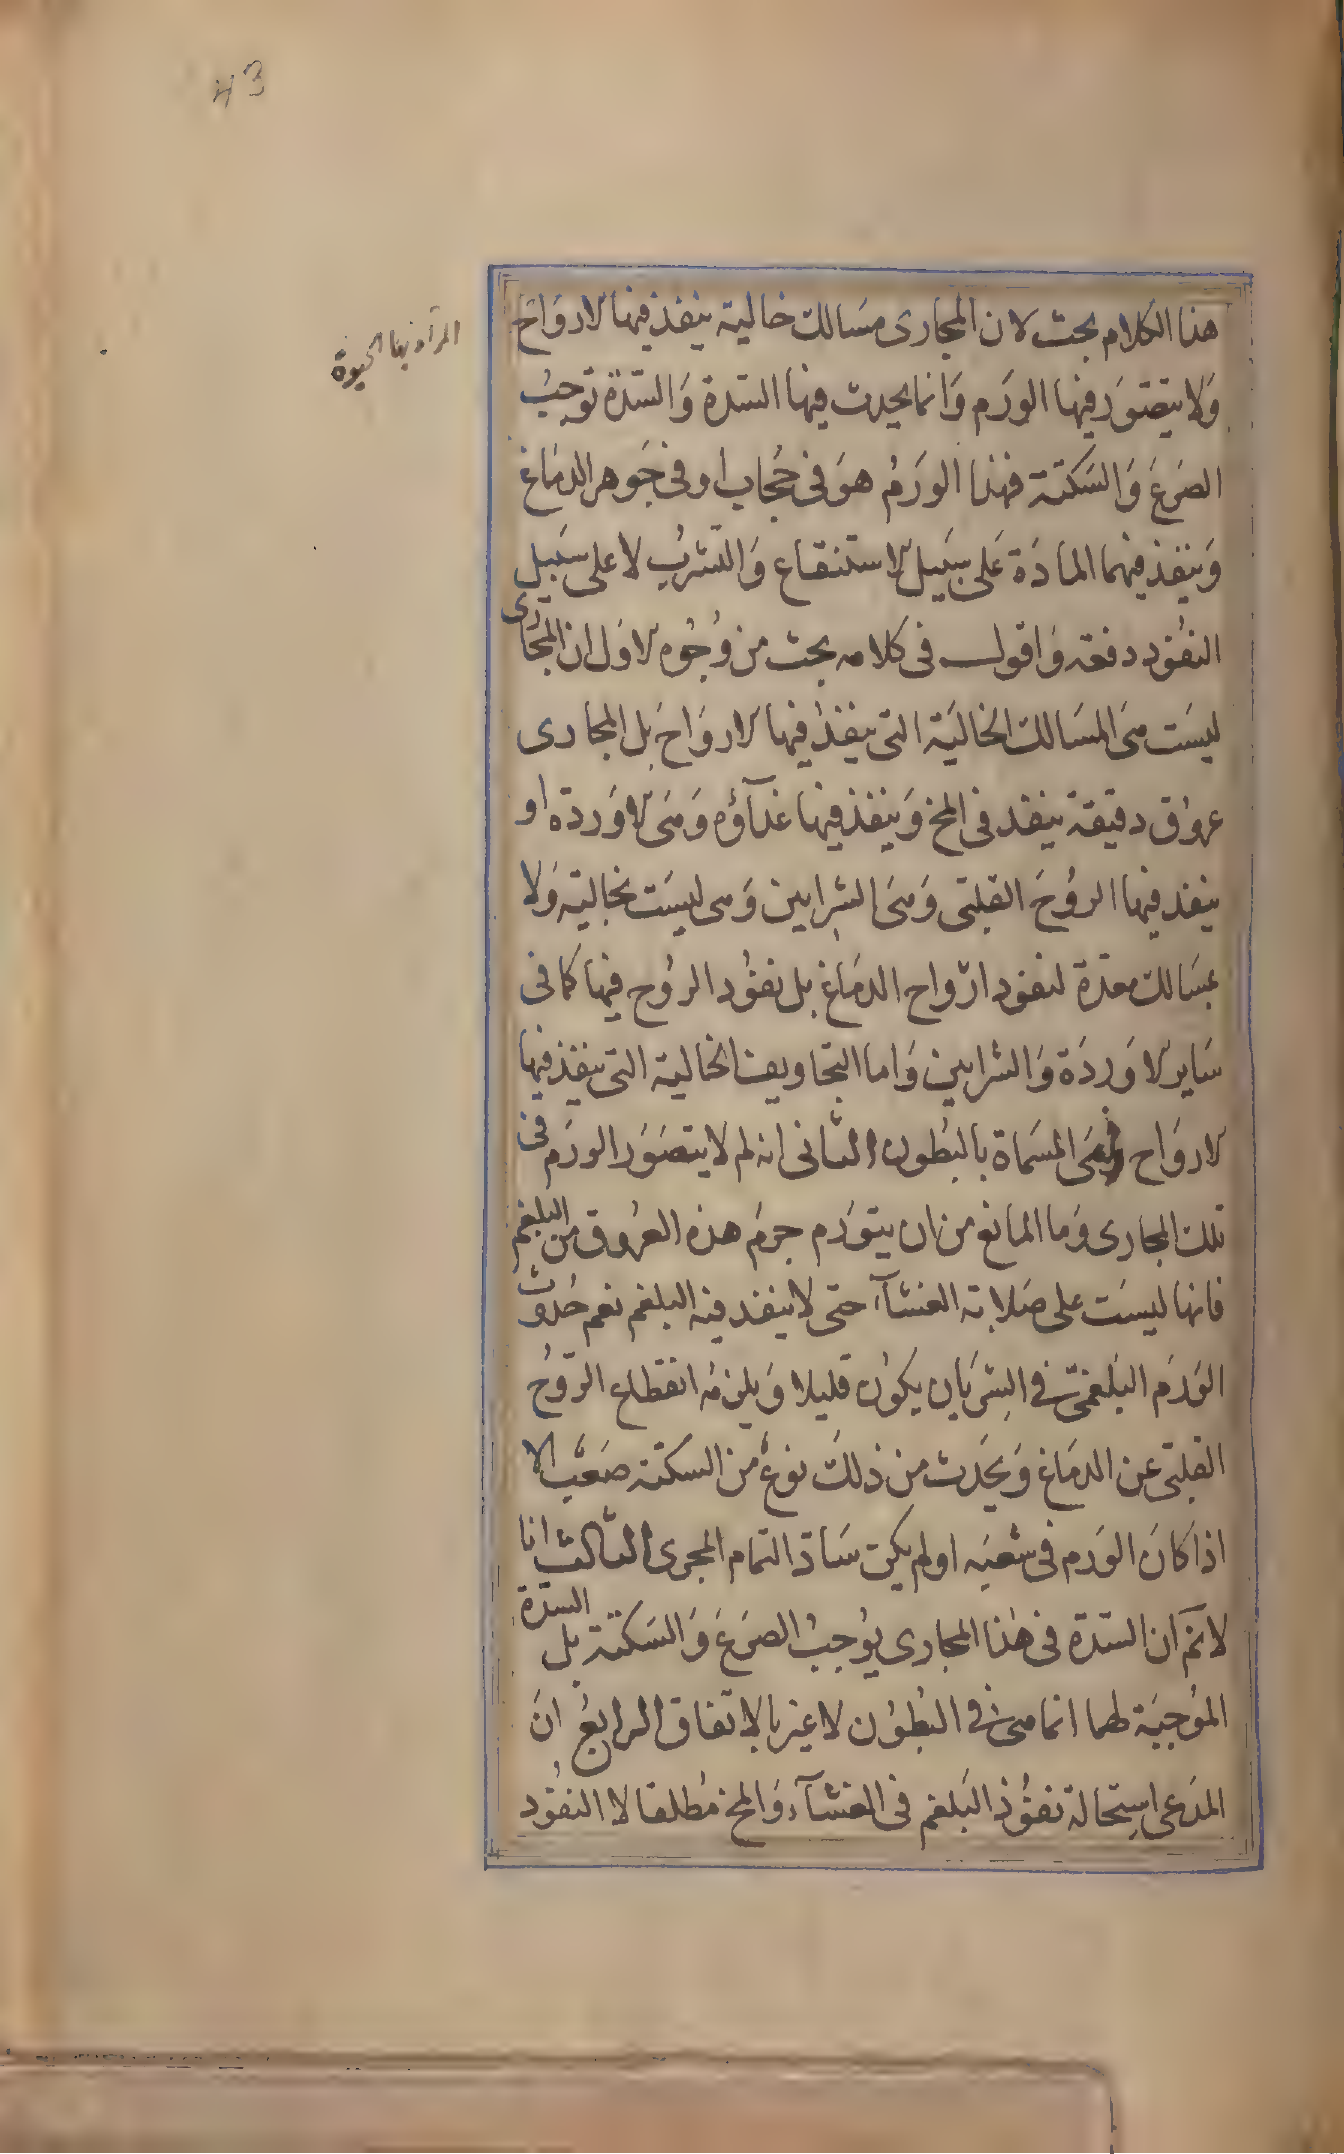 43
المراد بها الحيوة
هذا الكلام بحث لان المجارى مسالك خالية ينفذ فيها الارواح
وَلا يتصَوّر فيها الورَم وَانما يحدث فيها السّدة وَالسّدّة توجبُ
الصَرعَ وَالسَكتة فهذا الورَمُ هوَ فى حُجاب او فى جَوهر الدمَاغ
وَينفذ فيهما المادَة عَلى سَبيل الاستنقاع وَالتشربُ لا على سَبيل
النفوذ دفعة وَاقول فى كلامه بحث من وُجُوه الاوَل ان المجَارى
ليسَت هىَ المسَالك الخاليَة التى ينفذُ فيها الاروَاحَ بل المجارى
عروُق دقيقة ينفذ فى المخ وَينفذ فيها غذآؤه وَهىَ الاوَردة او
ينفذ فيها الروُحَ القلبى وَهىَ الشرايين وَهى ليسَت بخالية وَلا
بمسَالك معدّة لنفوذ ارْواح الدمَاغ بل نفوُذ الروُح فيها كما فى
سَاير الاوَردَة وَالشرايين وَاما التجاويف الخالية التى ينفذ فيها
الاروَاح فهىَ المسَماة بالبُطون الثانى انه لم لا يتصَوَر الورَم فى
تلك المجارى وَما المانع من ان يتورَم جرمَ هذه العُروق من البلغم
فانها ليسَت على صَلابة الغشآء حتى لا ينفذ فيه البلغم نعم حُدوث
الوَرَم البَلغمىّ فى الشرَيَان يكوُن قليلا وَيلزمُه انقطاع الرّوُح
القلبى عن الدمَاغ وَيحَدث من ذلك نوعُ من السكتة صَعَبُ الا
اذا كانَ الوَرم فى شعبَه او لم يكن سَادّ التمام المجرى الثالث انا
لا نمَ ان السّدّة فى هٰذا المجارى يوُجبُ الصَرعَ وَالسَكتة بل السّدّة
الموُجبَة لهما انما هى فى البُطوُن لا غير بالاتفاق الرابعُ انَ
المدَعى استحالة نفوُذ البَلغم فى الغشآء وَالمخ مُطلقا لا النفوُذ